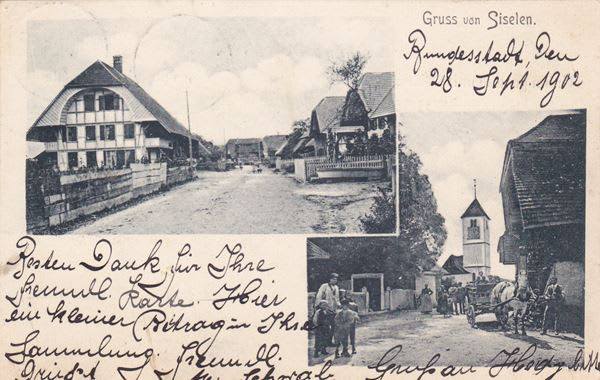 Gruss von Siselen.
Bundesstadt, Den
28. Sept. 1902
Besten Dank für Ihre
freundl. Karte. Hier
ein kleiner Beitrag in Ihre
Sammlung. Freundl.
Gruss
Schwab
Gruss an